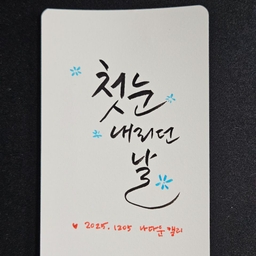 첫눈
내리던
날
2025. 1205 나다운 캘리